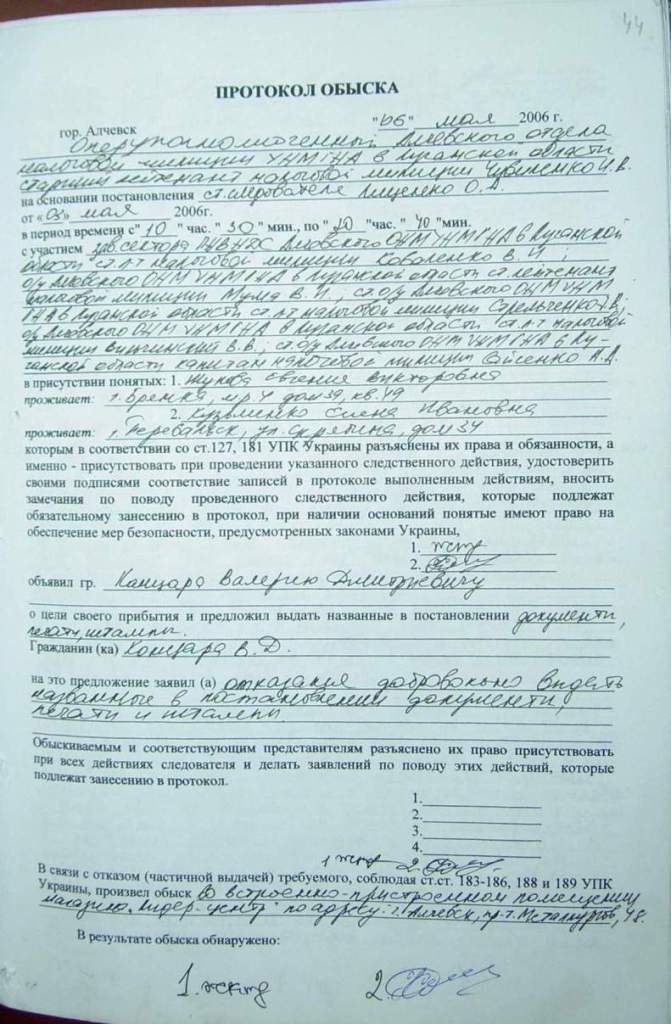 44
ПРОТОКОЛ ОБЫСКА
гор. Алчевск "06" мая 2006 г.
Оперуполномоченный Алчевского отдела
налоговой милиции УНМ ГНА в Луганской области
старший лейтенант налоговой милиции И.В.
на основании постановления ст. следователя О.А.
от «05» мая 2006г.
в период времени с "10" час. "30" мин., по " "час. "40 "мин.
с участием зав. сектора Алчевского ОНМ УНМ ГНА в Луганской
области ст. л-т налоговой милиции Коваленко В.И.;
о/у Алчевского ОНМ УНМ ГНА в Луганской области ст. лейтенант
налоговой милиции В.И., ст. о/у Алчевского ОНМ УНМ
ГНА в Луганской области ст. л-т налоговой милиции
о/у Алчевского ОНМ УНМ ГНА в Луганской области ст. л-т налоговой
милиции В.В.; ст. о/у Алчевского ОНМ УНМ ГНА в Лу-
ганской области капитан налоговой милиции А.Д.
в присутствии понятых: 1. Жукова Евгения Викторовна
проживает: г. дом 39, кв. 49
2. Кузьменко Елена Ивановна
проживает: г. Перевальск, ул. дом 34
которым в соответствии со ст.127, 181 УПК Украины разъяснены их права и обязанности, а
именно - присутствовать при проведении указанного следственного действия, удостоверить
своими подписями соответствие записей в протоколе выполненным действиям, вносить
замечания по поводу проведенного следственного действия, которые подлежат
обязательному занесению в протокол, при наличии оснований понятые имеют право на
обеспечение мер безопасности, предусмотренных законами Украины,
1.
2.
объявил гр. Канцара Валерию Дмитриевичу
о цели своего прибытия и предложил выдать названные в постановлении документы,
печати, штампы.
Гражданин (ка) Канцара В.Д.
на это предложение заявил (а) отказался добровольно выдать
названные в постановлении документы,
печати и штампы.
Обыскиваемым и соответствующим представителям разъяснено их право присутствовать
при всех действиях следователя и делать заявлений по поводу этих действий, которые
подлежат занесению в протокол.
1.
2.
3.
4.
1 2.
В связи с отказом (частичной выдачей) требуемого, соблюдая ст.ст. 183-186, 188 и 189 УПК
Украины, произвел обыск во встроенно-пристроенном помещении
магазина "Лидер-центр" по адресу: г. Алчевск, пр-т. Металлургов, 48.
В результате обыска обнаружено:
1. 2.